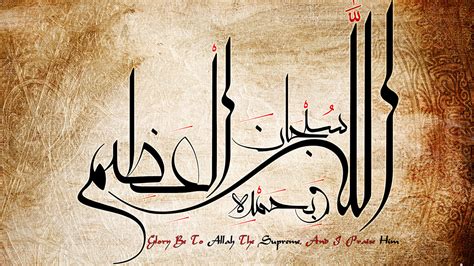 سبحان الله العظيم
وبحمده
Glory Be To Allah The Supreme, And I Praise Him